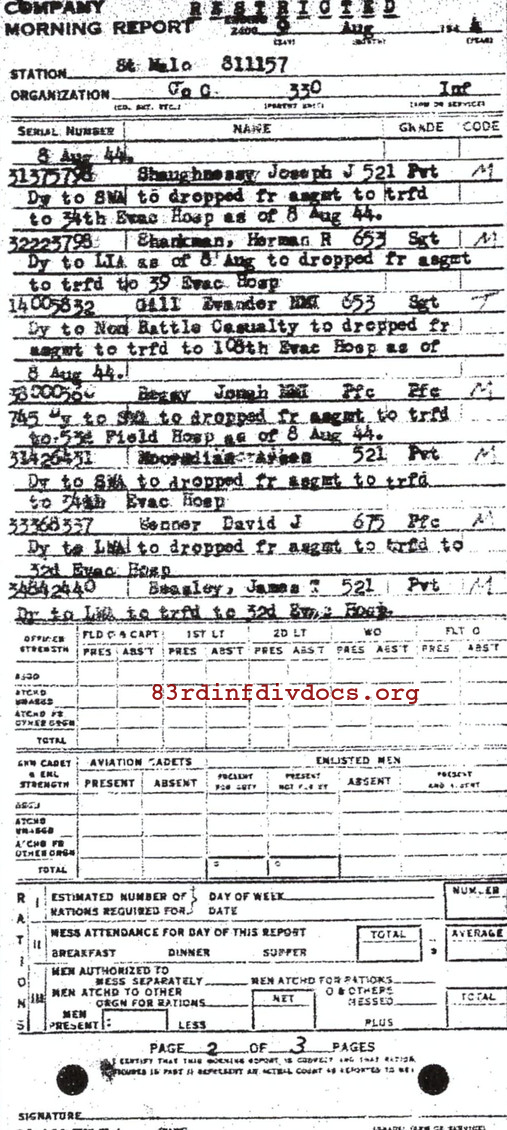 COMPANY
MORNING REPORT
RESTRICTED
ENDING 2400 9 Aug 194 4
(DAY) (MONTH) (YEAR)
STATION St Malo 811157
ORGANIZATION Co C 330 Inf
SERIAL NUMBER NAME GRADE CODE
8 Aug 44.
31375798 Shaughnessy Joseph J 521 Pvt M
Dy to SWA to dropped fr asgmt to trfd
to 34th Evac Hosp as of 8 Aug 44.
32223798 Shankman, Herman R 653 Sgt M
Dy to LIA as of 8 Aug to dropped fr asgmt
to trfd to 39 Evac Hosp
14005832 Gill Evander NMI 653 Sgt
Dy to Non Battle Casualty to dropped fr
asgmt to trfd to 108th Evac Hosp as of
8 Aug 44.
Jonah NMI Pfc Pfc M
745 Dy to SWA to dropped fr asgmt to trfd
to 53d Field Hosp as of 8 Aug 44.
31426431 521 Pvt M
Dy to SWA to dropped fr asgmt to trfd
to 34th Evac Hosp
33368337 David J 675 Pfc M
Dy to LWA to dropped fr asgmt to trfd to
32d Evac Hosp
34842440 Beasley, James T 521 Pvt M
Dy to LWA to trfd to 32d Evac Hosp.
OFFICER STRENGTH FLD O & CAPT 1ST LT 2D LT WO FLT O
PRES ABS'T PRES ABS'T PRES ABS'T PRES ABS'T PRES ABS'T
ASGD
ATCHD UNASGD
ATCHD FR OTHER ORGN
TOTAL
83rdinfdivdocs.org
AVIATION CADETS ENLISTED MEN
STRENGTH PRESENT ABSENT PRESENT FOR DUTY PRESENT NOT FOR DY ABSENT PRESENT AND ABSENT
ASGD
ATCHD UNASGD
ATCHD FR OTHER ORGN
TOTAL
RATIONS
I ESTIMATED NUMBER OF RATIONS REQUIRED FOR DAY OF WEEK DATE NUMBER
II MESS ATTENDANCE FOR DAY OF THIS REPORT TOTAL AVERAGE
BREAKFAST DINNER SUPPER
III MEN AUTHORIZED TO MESS SEPARATELY MEN ATCHD FOR RATIONS
MEN ATCHD TO OTHER ORGN FOR RATIONS NET O & OTHERS MESSED TOTAL
MEN PRESENT LESS PLUS
PAGE 2 OF 3 PAGES
I CERTIFY THAT THIS MORNING REPORT IS CORRECT AND THAT RATION
FIGURES IN PART II REPRESENT AN ACTUAL COUNT AS REPORTED TO ME:
SIGNATURE